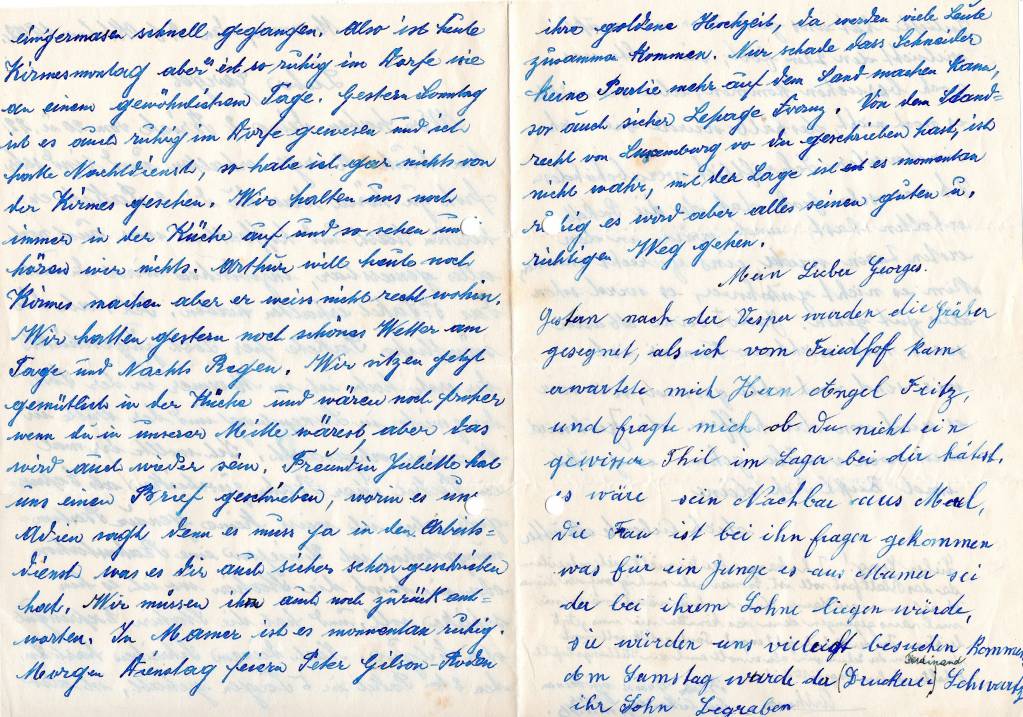 einigermasen schnell gegangen. Also ist heute
Kirmesmontag aber es ist so ruhig im Dorfe wie
an einem gewöhnlichem Tage. Gestern Sonntag
ist es auch ruhig im Dorfe gewesen und ich
hatte Nachtdienst, so habe ich gar nichts von
der Kirmes gesehen. Wir halten uns noch
immer in der Küche auf und so sehen und
hören wir nichts. Arthur will heute noch
Kirmes machen aber er weiss nicht recht wohin.
Wir hatten gestern noch schönes Wetter am
Tage und Nachts Regen. Wir sitzen jetzt
gemütlich in der Küche und wären noch froher
wenn du in unserer Mitte wärest, aber das
wird auch wieder sein. Freundin Juliette hat
uns einen Brief geschrieben, worin es uns
Adien sagt denn es muss ja in den Arbeits-
dienst was es dir auch sicher schon geschrieben
hat. Wir müssen ihm auch noch zurück ant-
worten. In Mamer ist es momentan ruhig.
Morgen Dienstag feiern Peter Gilson-
ihre goldene Hochzeit, da werden viele Leute
zusammen kommen. Nur schade dass Schneider
keine Partie mehr auf dem Sand machen kann,
so auch sicher Lepage Franz. Von dem Stand-
recht von Luxemburg wo du geschrieben hast, ist
nicht wahr, mit der Lage ist es momentan
ruhig es wird aber alles seinen guten u.
richtigen Weg gehen.
Mein Lieber Georges.
Gestern nach der Vesper wurden die Gräber
gesegnet, als ich vom Friedhof kam
erwartete mich Hern Angel Fritz,
und fragte mich ob Du nicht ein
gewisser Thil im Lager bei dir hätst.
es wäre sein Nachbar aus Merl,
die Frau ist bei ihn fragen gekommen
was für ein Junge es aus Mamer sei
der bei ihrem Sohne liegen würde,
sie würden uns vieleigt besuchen kommen
dem Samstag wurde der (Druckerei) Ferdinand Schwartz
ihr Sohn begraben